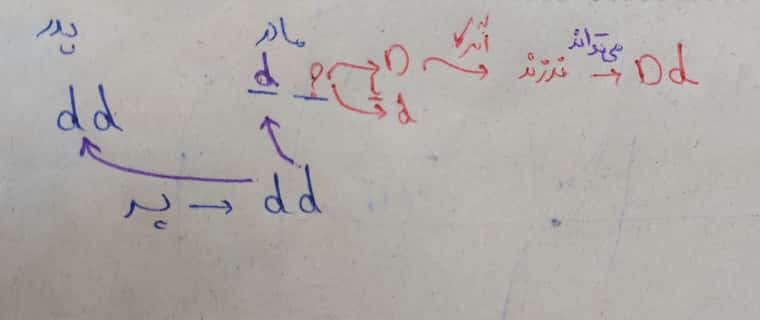 پدر
مادر
d ? D اگر فرزند می‌تواند Dd
d
dd
پسر → dd